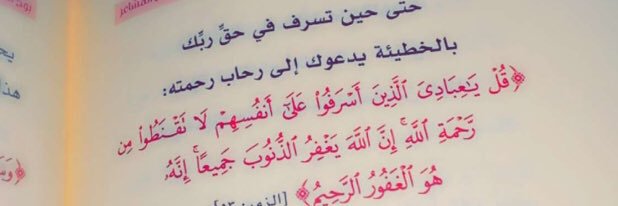 حتى حين تسرف في حقِّ ربِّك
بالخطيئة يدعوك إلى رحاب رحمته:
﴿قُلْ يَٰعِبَادِىَ الَّذِينَ أَسْرَفُوا۟ عَلَىٰٓ أَنفُسِهِمْ لَا تَقْنَطُوا۟ مِن
رَّحْمَةِ اللَّهِ ۚ إِنَّ اللَّهَ يَغْفِرُ الذُّنُوبَ جَمِيعًا ۚ إِنَّهُۥ
هُوَ الْغَفُورُ الرَّحِيمُ﴾ [الزمر: ٥٣]